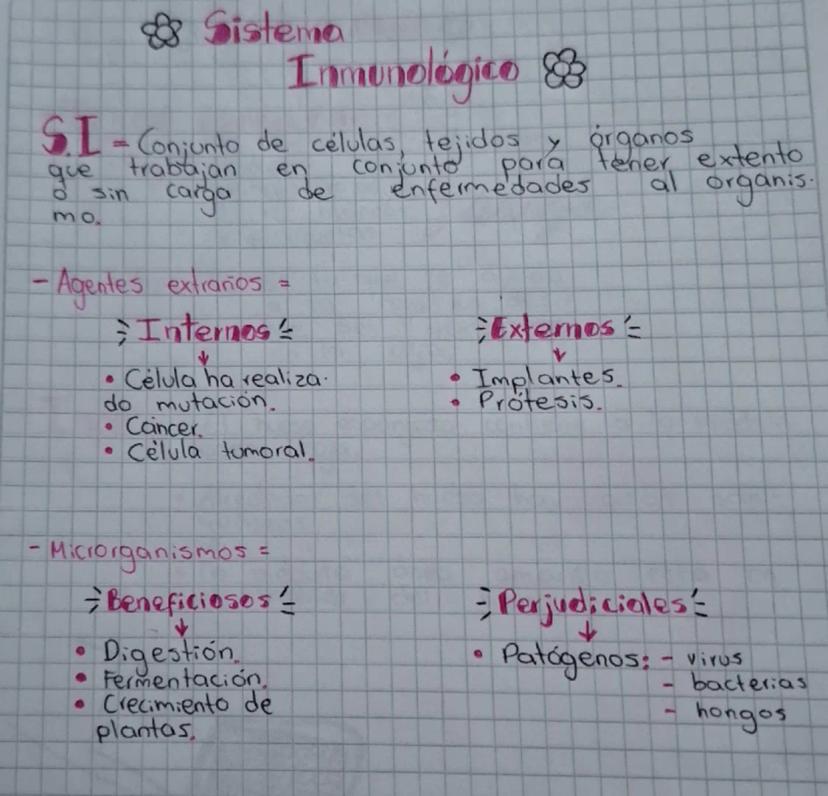 Sistema
Inmunológico
S.I = Conjunto de células, tejidos y órganos
que trabajan en conjunto para tener extento
ó sin carga de enfermedades al organis-
mo.
- Agentes extraños =
Internos
Externos
• Célula ha realiza-
do mutación.
• Cáncer.
• Célula tumoral.
• Implantes.
• Prótesis.
- Microrganismos =
Beneficiosos
Perjudiciales
• Digestión.
• Fermentación.
• Crecimiento de
plantas.
• Patógenos: - virus
- bacterias
- hongos